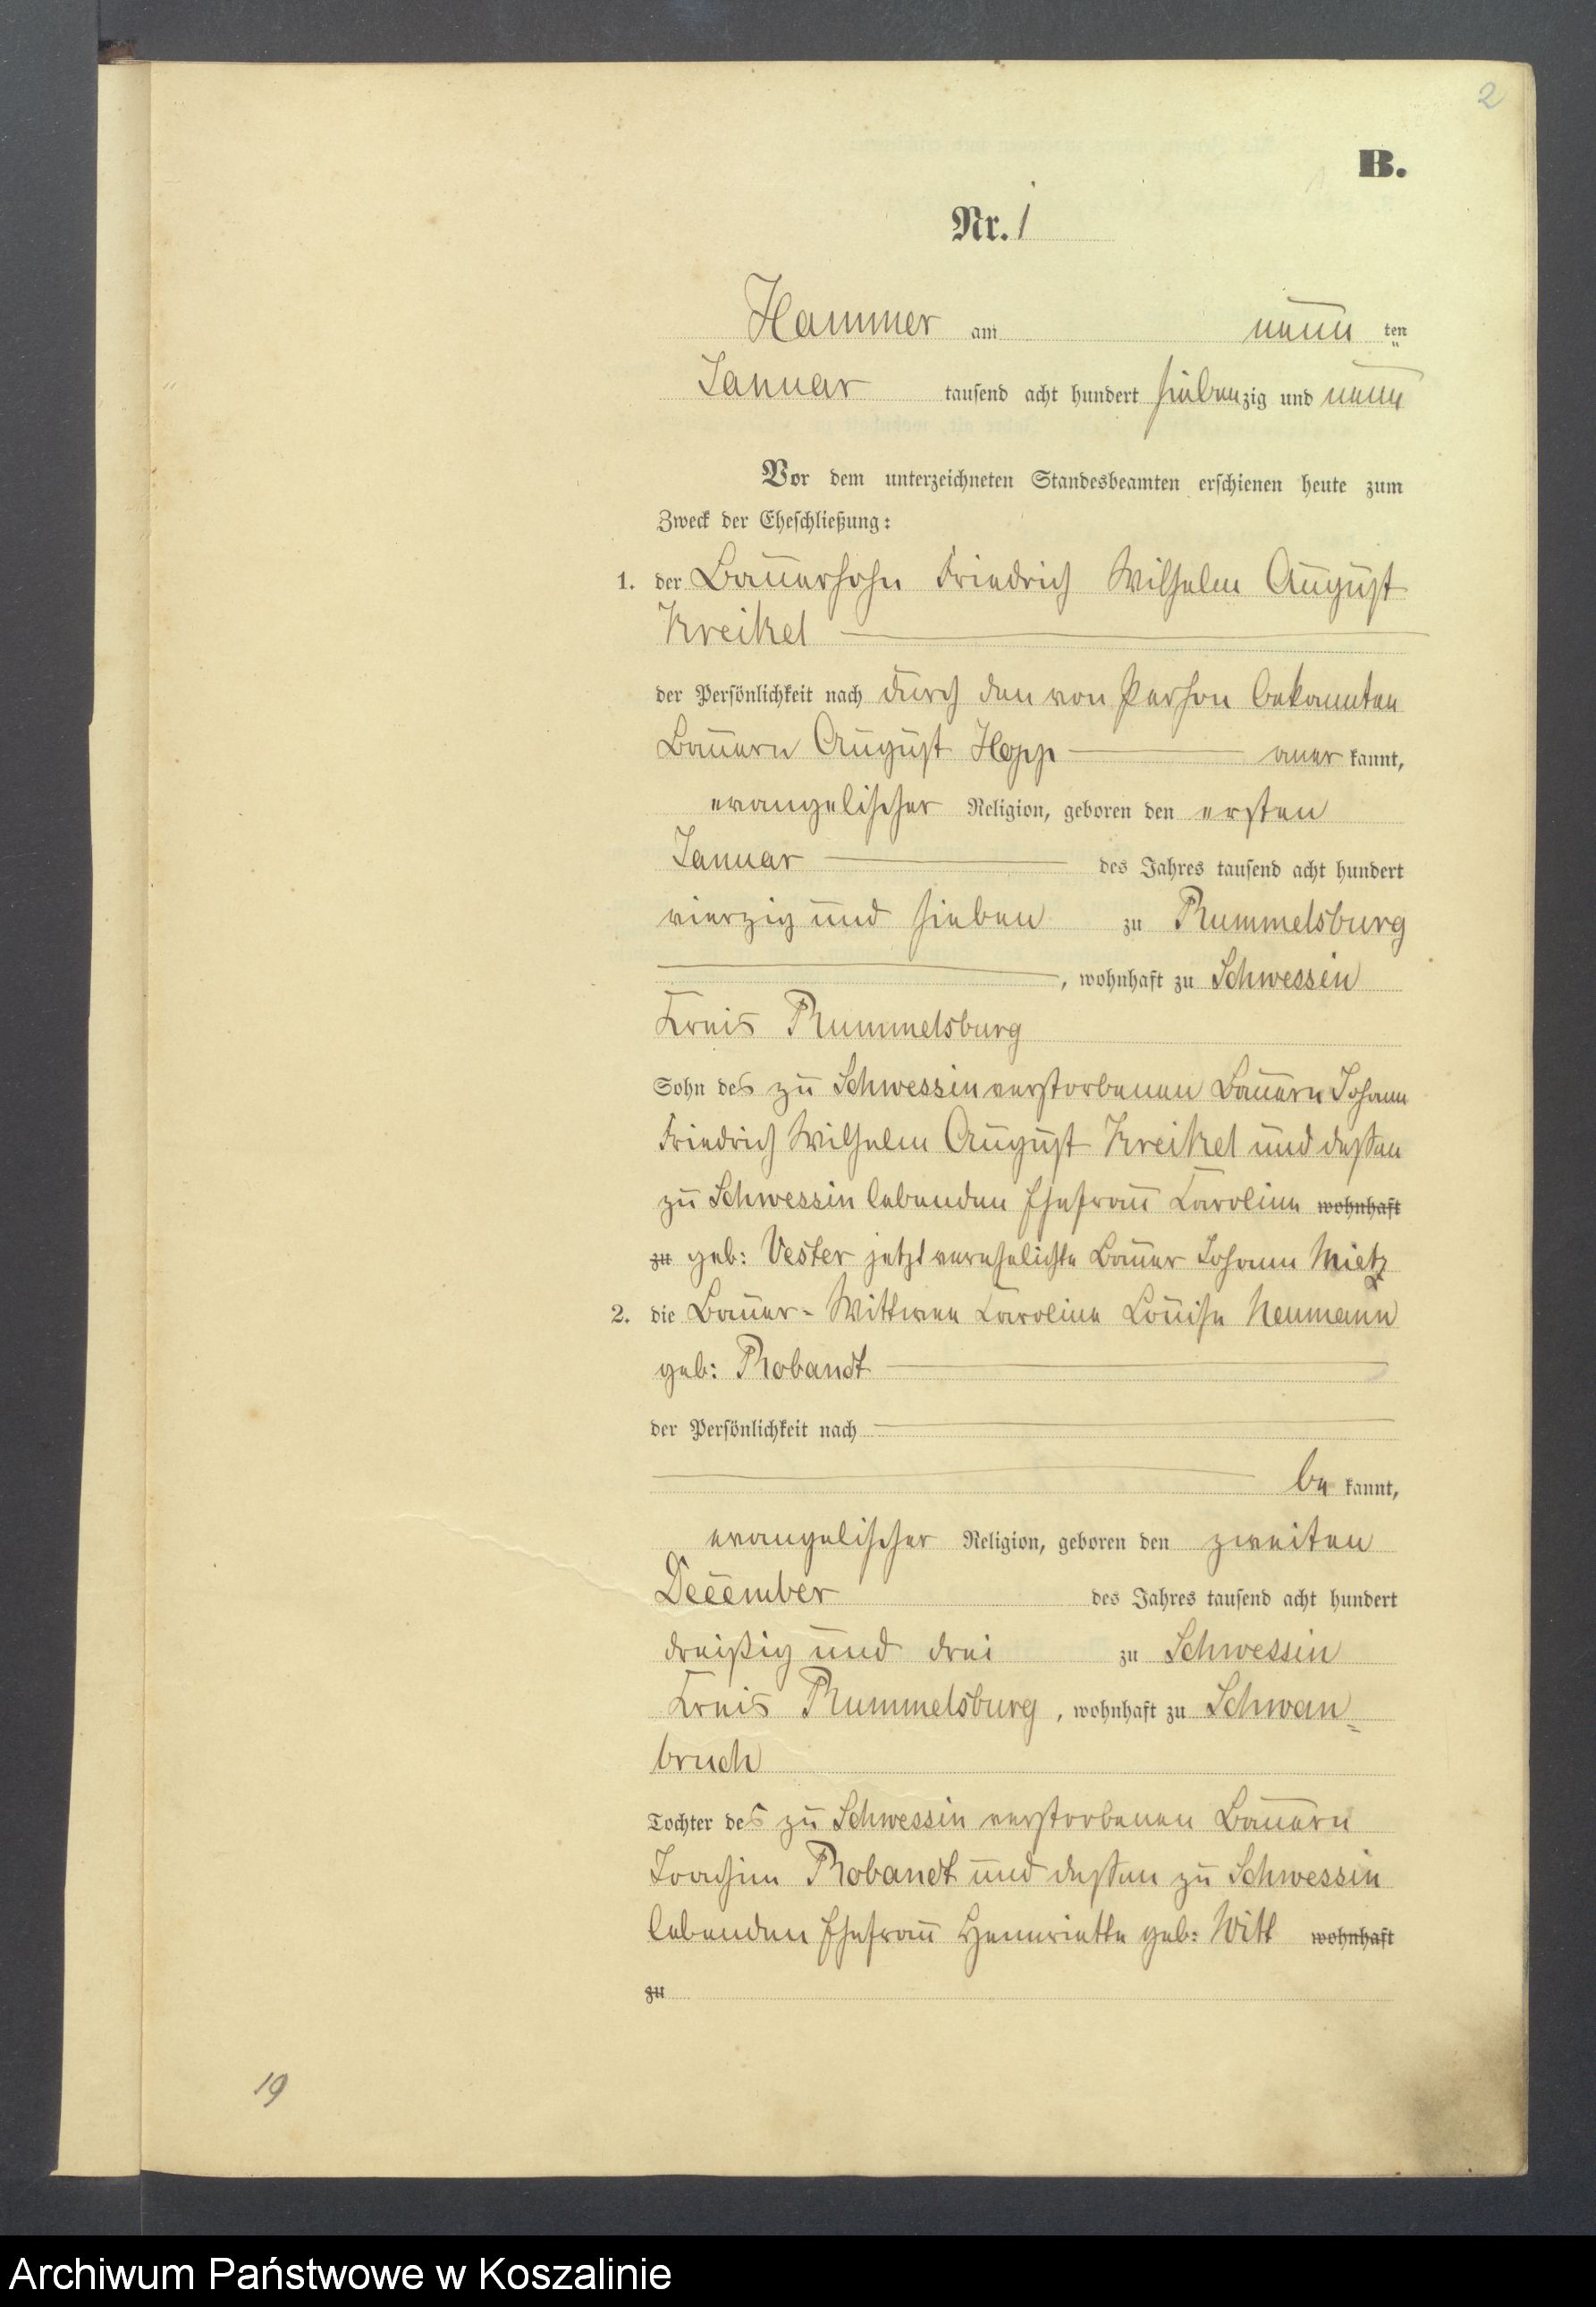 2
B.
Nr. 1
Hammer am neun ten
Januar tausend acht hundert siebenzig und neun
Vor dem unterzeichneten Standesbeamten erschienen heute zum
Zweck der Eheschließung:
1. der Bauersohn Friedrich Wilhelm August
Kreikel
der Persönlichkeit nach durch den von Person bekannten
Bauern August Hopp aner kannt,
evangelischer Religion, geboren den ersten
Januar des Jahres tausend acht hundert
vierzig und sieben zu Rummelsburg
, wohnhaft zu Schwessin
Kreis Rummelsburg
Sohn des zu Schwessin verstorbenen Bauern Johann
Friedrich Wilhelm August Kreikel und dessen
zu Schwessin lebenden Ehefrau Karoline wohnhaft
zu geb: Vester jetzt verehelichte Bauer Johann Mietz
2. die Bauer-Wittwee Karoline Louise Neumann
geb: Robandt
der Persönlichkeit nach
be kannt,
evangelischer Religion, geboren den zweiten
December des Jahres tausend acht hundert
dreißig und drei zu Schwessin
Kreis Rummelsburg, wohnhaft zu Schwan=
bruch
Tochter des zu Schwessin verstorbenen Bauern
Joachim Robandt und dessen zu Schwessin
lebenden Ehefrau Henriette geb: Witt wohnhaft
zu
19
Archiwum Państwowe w Koszalinie